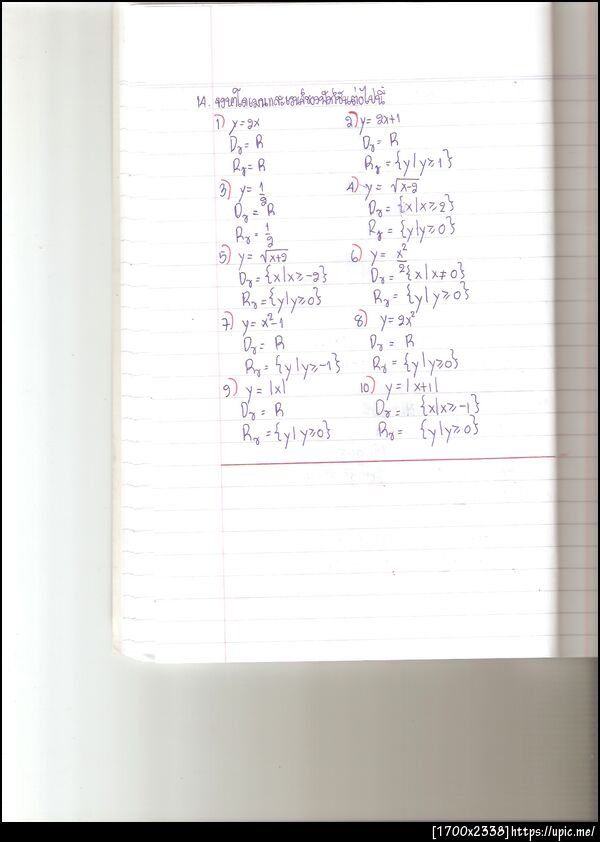 14. จงหาโดเมนและเรนจ์ของฟังก์ชันต่อไปนี้
1) y = 2x
Dr = R
Rr = R
2) y = 2x+1
Dr = R
Rr = {y|y≥1}
3) y = 1/2
Dr = R
Rr = 1/2
4) y = √x-2
Dr = {x|x≥2}
Rr = {y|y≥0}
5) y = √x+2
Dr = {x|x≥-2}
Rr = {y|y≥0}
6) y = x²/2
Dr = {x|x≠0}
Rr = {y|y≥0}
7) y = x²-1
Dr = R
Rr = {y|y≥-1}
8) y = 2x²
Dr = R
Rr = {y|y≥0}
9) y = |x|
Dr = R
Rr = {y|y≥0}
10) y = |x+1|
Dr = {x|x≥-1}
Rr = {y|y≥0}
[1700x2338]https://upic.me/